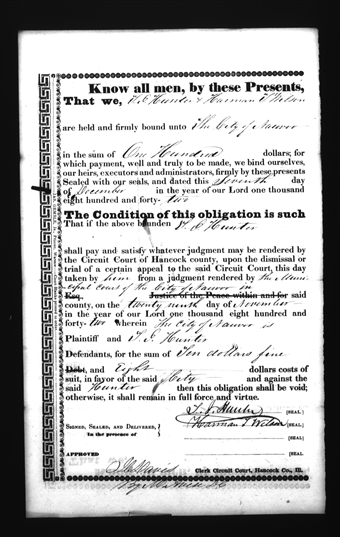 Know all men, by these Presents,
That we, J. J. Hunter & Harman T Wilson
are held and firmly bound unto The City of Nauvoo
in the sum of One Hundred dollars; for
which payment, well and truly to be made, we bind ourselves,
our heirs, executors and administrators, firmly by these presents
Sealed with our seals, and dated this Seventh day
of December in the year of our Lord one thousand
eight hundred and forty- two
The Condition of this obligation is such
That if the above bounden Hunter
shall pay and satisfy whatever judgment may be rendered by
the Circuit Court of Hancock county, upon the dismissal or
trial of a certain appeal to the said Circuit Court, this day
taken by him from a judgment rendered by the Muni
cipal Court of the City of Nauvoo in
Esq. Justice of the Peace within and for said
county, on the twenty ninth day of November
in the year of our Lord one thousand eight hundred and
forty- two wherein The City of Nauvoo is
Plaintiff and Hunter
Defendants, for the sum of Ten dollars fine
Debt, and Eight dollars costs of
suit, in favor of the said City and against the
said Hunter then this obligation shall be void;
otherwise, it shall remain in full force and virtue.
Hunter [SEAL.]
Harman T Wilson [SEAL.]
Signed, Sealed, and Delivered,
In the presence of
[SEAL.]
[SEAL.]
APPROVED
Davis Clerk Circuit Court, Hancock Co., Ill.